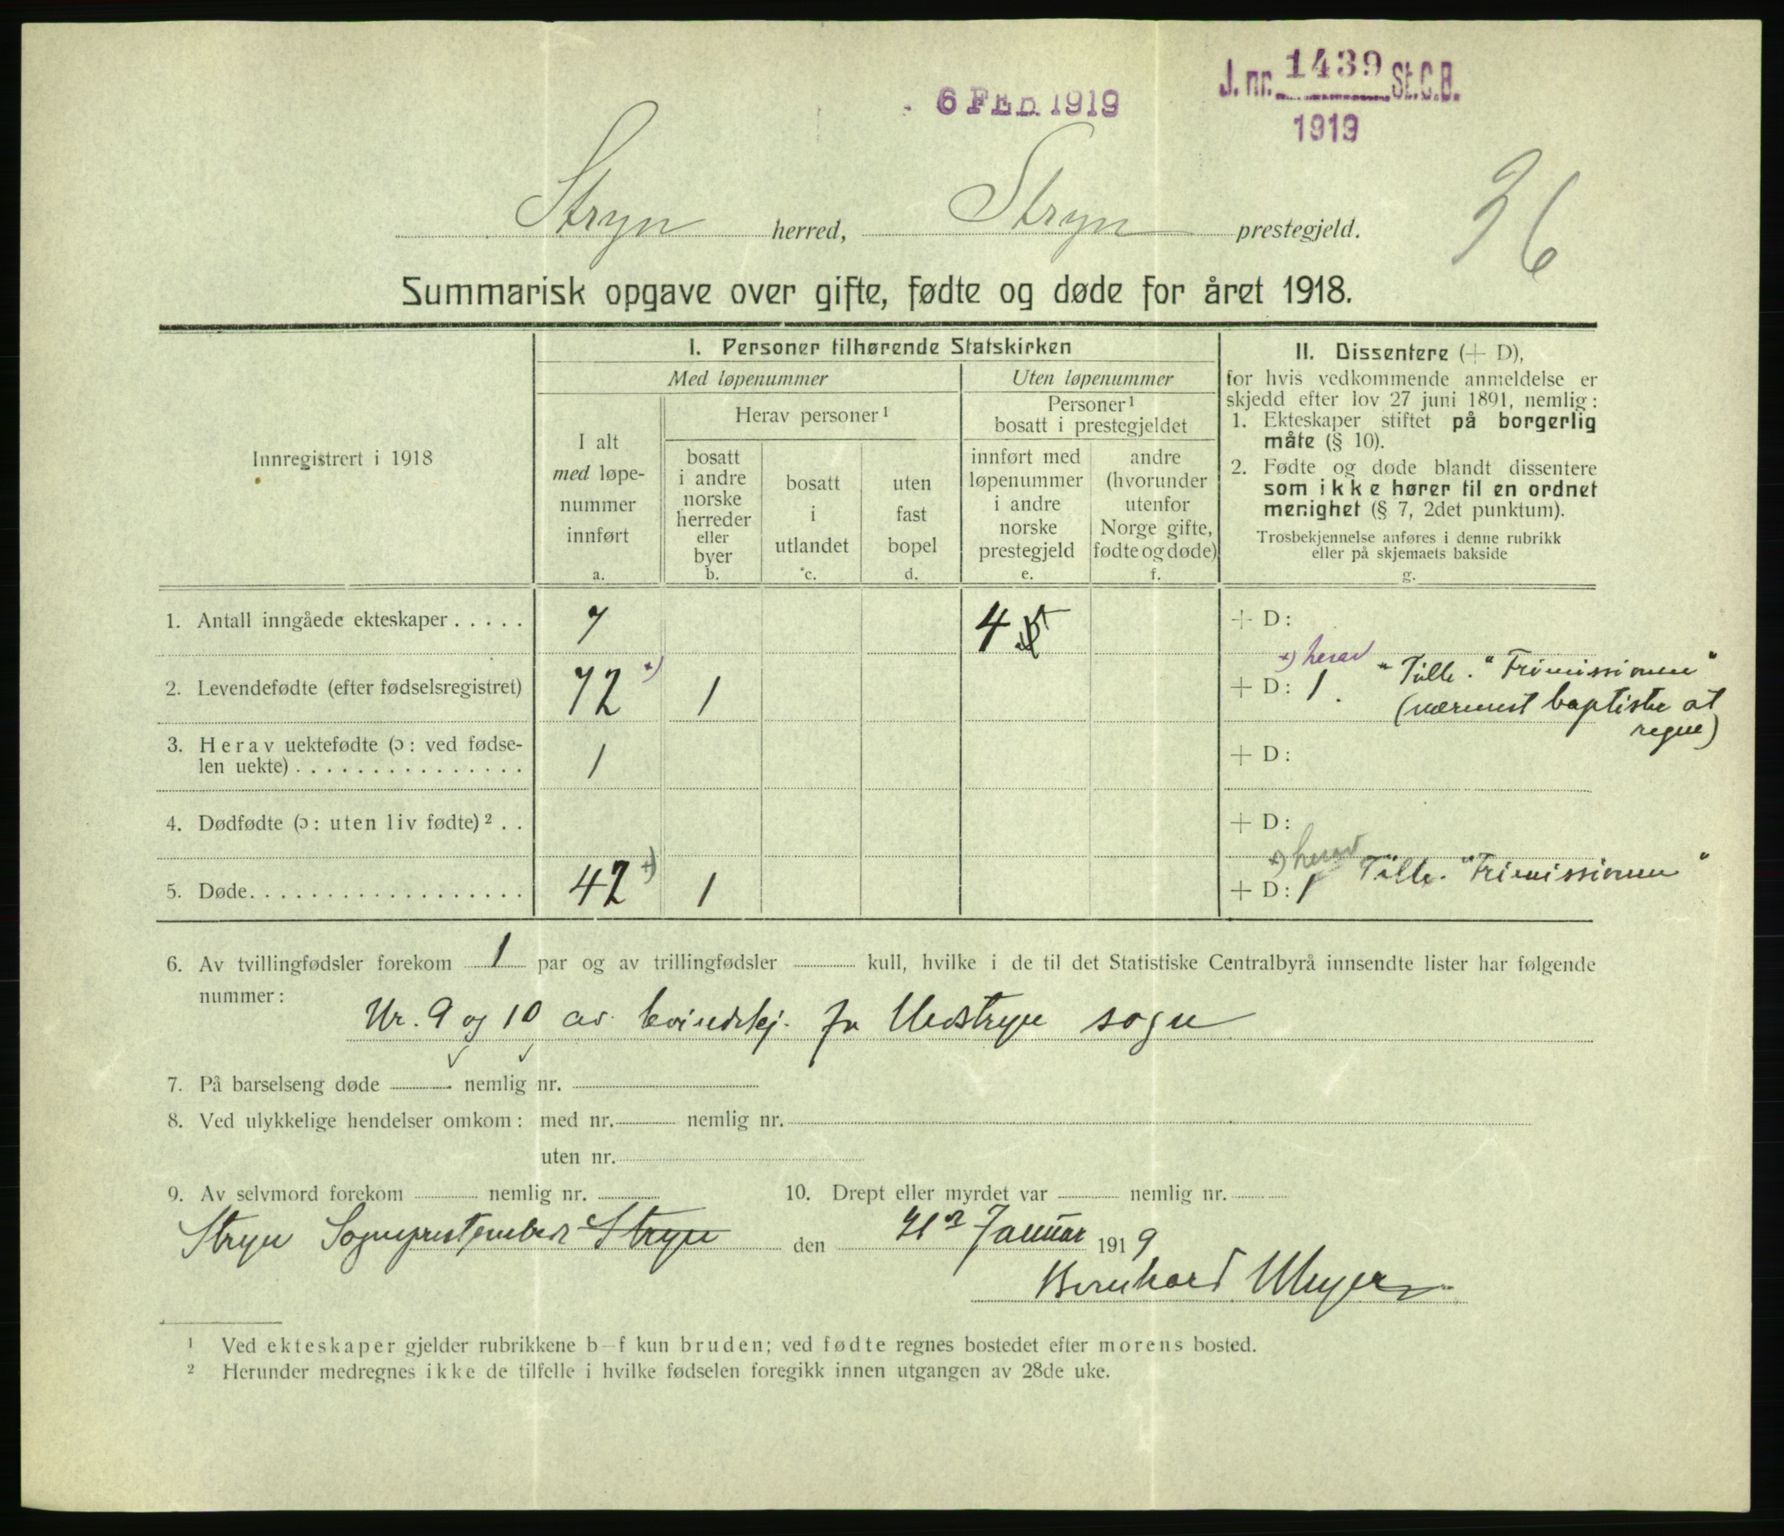 J. nr. 1439 St.C.B.
6 FEB. 1919
1919
Stryn herred, Stryn prestegjeld.
36
Summarisk opgave over gifte, fødte og døde for året 1918.
I. Personer tilhørende Statskirken
Med løpenummer
Uten løpenummer
Innregistrert i 1918
I alt
med løpe-
nummer
innført
a.
Herav personer¹
bosatt
i andre
norske
herreder
eller
byer
b.
bosatt
i
utlandet
c.
uten
fast
bopel
d.
Personer¹
bosatt i prestegjeldet
innført med
løpenummer
i andre
norske
prestegjeld
e.
andre
(hvorunder
utenfor
Norge gifte,
fødte og døde)
f.
II. Dissentere (+ D),
for hvis vedkommende anmeldelse er
skjedd efter lov 27 juni 1891, nemlig:
1. Ekteskaper stiftet på borgerlig
måte (§ 10).
2. Fødte og døde blandt dissentere
som ikke hører til en ordnet
menighet (§ 7, 2det punktum).
Trosbekjennelse anføres i denne rubrikk
eller på skjemaets bakside
g.
1. Antall inngåede ekteskaper..... 7 4 + D:
+) herav
2. Levendefødte (efter fødselsregistret) 72 +) 1 + D: 1. "Tilh. "Frimissionen"
(nærmest baptister at
regne)
3. Herav uektefødte (ɔ: ved fødse-
len uekte)............... 1 + D:
4. Dødfødte (ɔ: uten liv fødte)² .. + D:
+) herav
5. Døde.................. 42 +) 1 + D: 1 Tilh. "Frimissionen"
6. Av tvillingfødsler forekom 1 par og av trillingfødsler kull, hvilke i de til det Statistiske Centralbyrå innsendte lister har følgende
nummer:
Nr. 9 og 10 av kvindekj. fra Nedstryn sogn
7. På barselseng døde nemlig nr.
8. Ved ulykkelige hendelser omkom: med nr. nemlig nr.
uten nr.
9. Av selvmord forekom nemlig nr.
10. Drept eller myrdet var nemlig nr.
Stryn Sogneprestembede Stryn den Januar 1919
Bernhard Meyer
¹ Ved ekteskaper gjelder rubrikkene b–f kun bruden; ved fødte regnes bostedet efter morens bosted.
² Herunder medregnes ikke de tilfelle i hvilke fødselen foregikk innen utgangen av 28de uke.